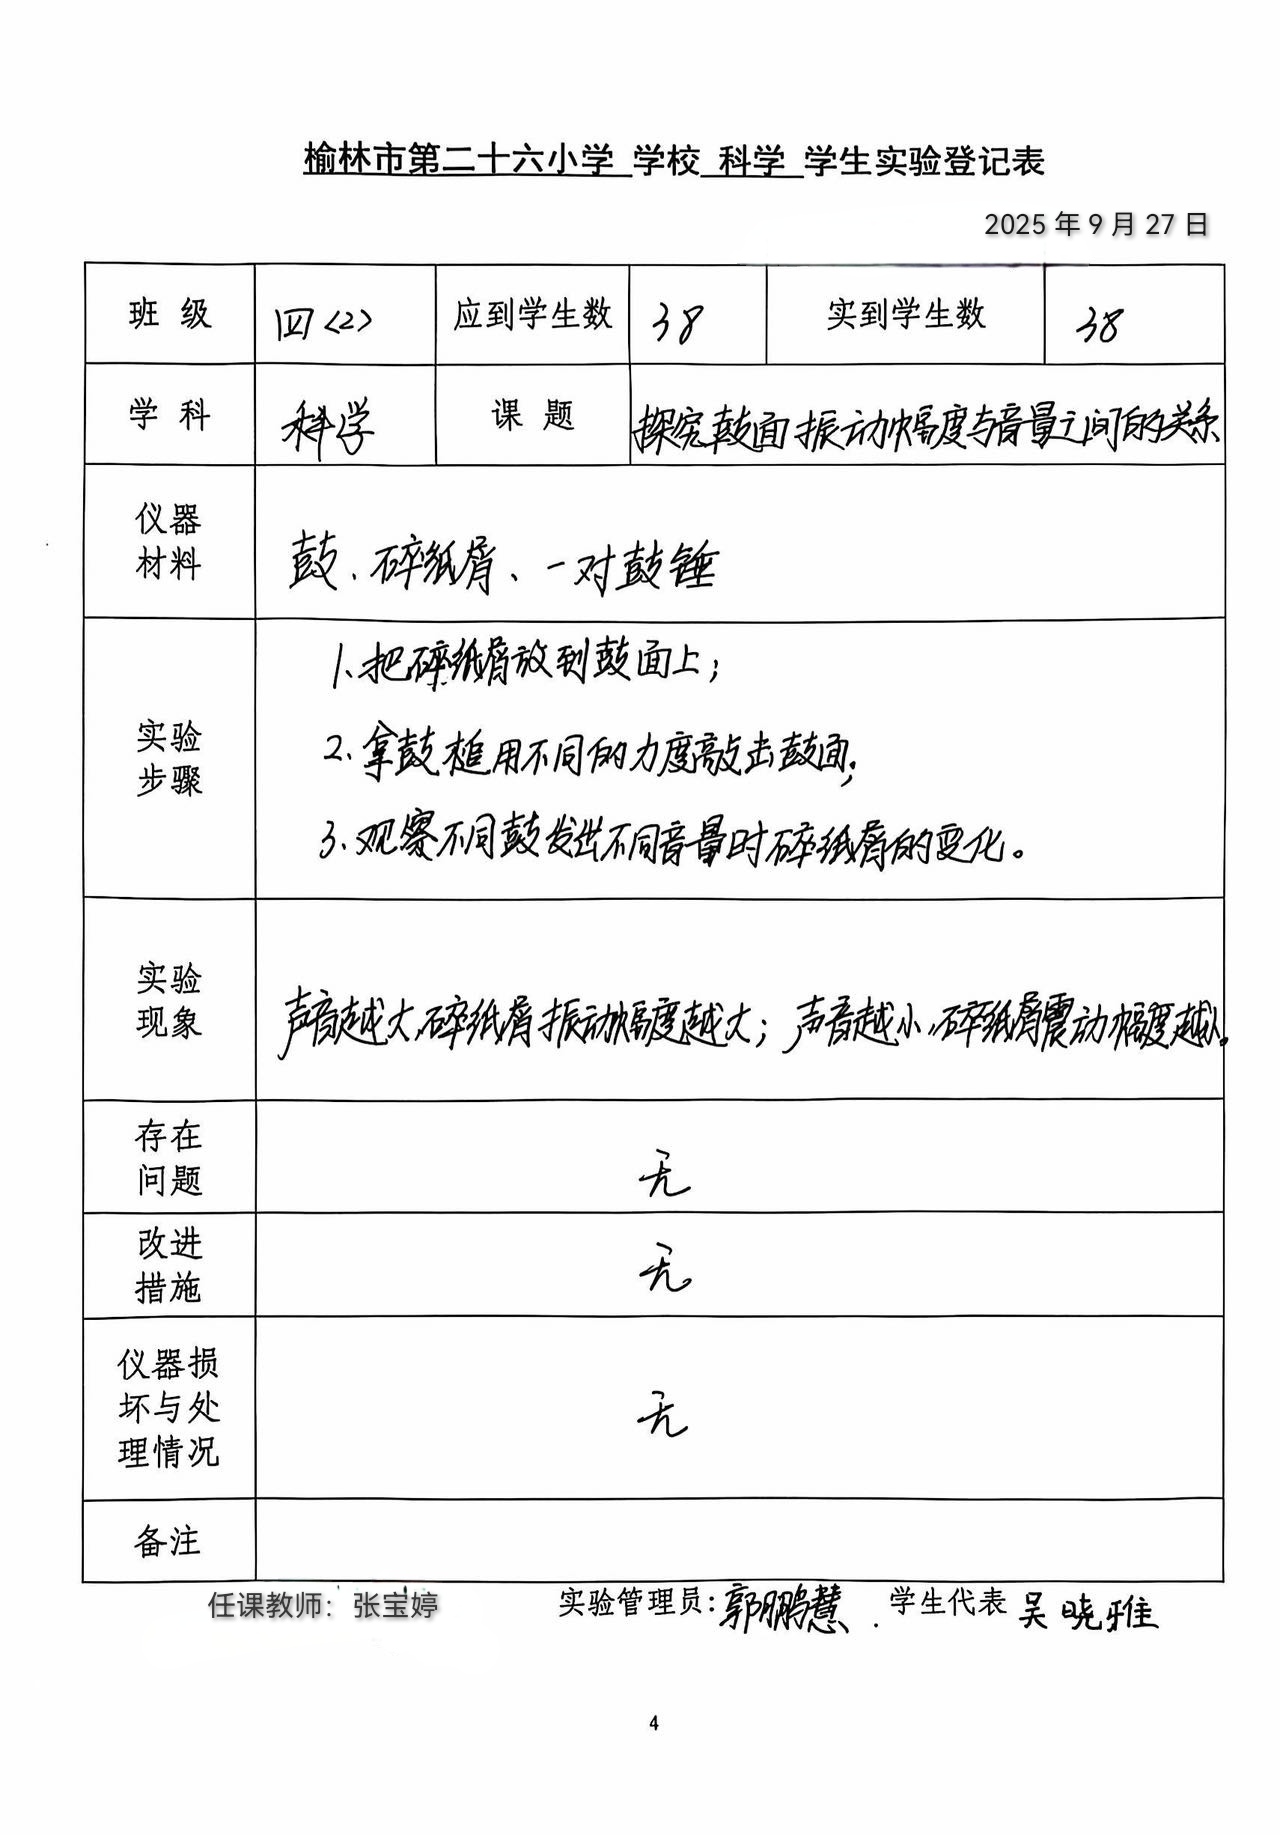 榆林市第二十六小学 学校 科学 学生实验登记表
2025 年 9 月 27 日
班 级 四(2) 应到学生数 38 实到学生数 38
学 科 科学 课 题 探究鼓面振动幅度与音量之间的关系
仪器
材料
鼓、碎纸屑、一对鼓锤
实验
步骤
1、把碎纸屑放到鼓面上;
2、拿鼓槌用不同的力度敲击鼓面;
3、观察不同鼓发出不同音量时碎纸屑的变化。
实验
现象
声音越大,碎纸屑振动幅度越大;声音越小,碎纸屑震动幅度越小。
存在
问题
无
改进
措施
无
仪器损
坏与处
理情况
无
备注
任课教师:张宝婷 实验管理员:郭鹏慧 . 学生代表 吴晓雅
4